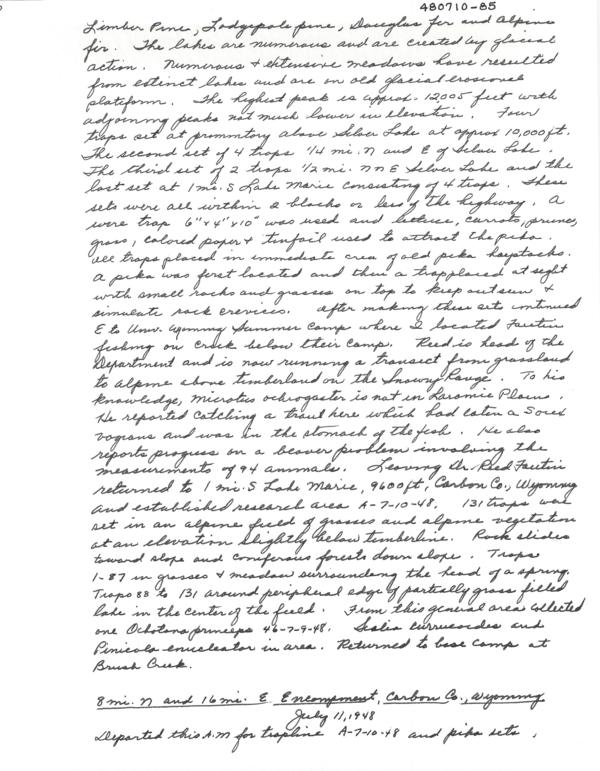 480710-85
Limber Pine, Lodgepole pine, Douglas fir and Alpine
fir. The lakes are numerous and are created by glacial
action. Numerous & extensive meadows have resulted
from extinct lakes and are on old glacial erosional
platform. The highest peak is approx. 12005 feet with
adjoining peaks not much lower in elevation. Four
traps set at promontory above Silver Lake at approx 10,000 ft.
The second set of 4 traps 1/4 mi. N and E of Silver Lake.
The third set of 2 traps 1/2 mi. NNE Silver Lake and the
last set at 1 mi. S Lake Marie consisting of 4 traps. These
sets were all within 2 blocks or less of the highway. A
wire trap 6" x 4" x 10" was used and lettuce, carrots, prunes,
grass, colored paper & tinfoil used to attract the pika.
All traps placed in immediate area of old pika haystacks.
A pika was first located and then a trap placed at sight
with small rocks and grasses on top to keep out sun &
simulate rock crevices. After making these sets continued
E to Univ. Wyoming Summer Camp where I located Fautin
fishing on Creek below their camp. Reed is head of the
Department and is now running a transect from grassland
to alpine above timberland on the Snowy Range. To his
knowledge, Microtus ochrogaster is not in Laramie Plains.
He reported catching a trout here which had eaten a Sorex
vagrans and was in the stomach of the fish. He also
reports progress on a beaver problem involving the
measurements of 94 animals. Leaving Dr. Reed Fautin
returned to 1 mi. S Lake Marie, 9600 ft, Carbon Co., Wyoming
and established research area A-7-10-48. 131 traps was
set in an alpine field of grasses and alpine vegetation
at an elevation slightly below timberline. Rock slides
toward slope and coniferous forests down slope. Traps
1-87 in grasses & meadow surrounding the head of a spring.
Traps 88 to 131 around peripheral edge of partially grass filled
lake in the center of the field. From this general area collected
one Ochotona princeps 46-7-9-48. Sialia currucoides and
Pinicola enucleator in area. Returned to base camp at
Brush Creek.
8 mi. N and 16 mi. E. Encampment, Carbon Co., Wyoming
July 11, 1948
Departed this A.M for trapline A-7-10-48 and pika sets.